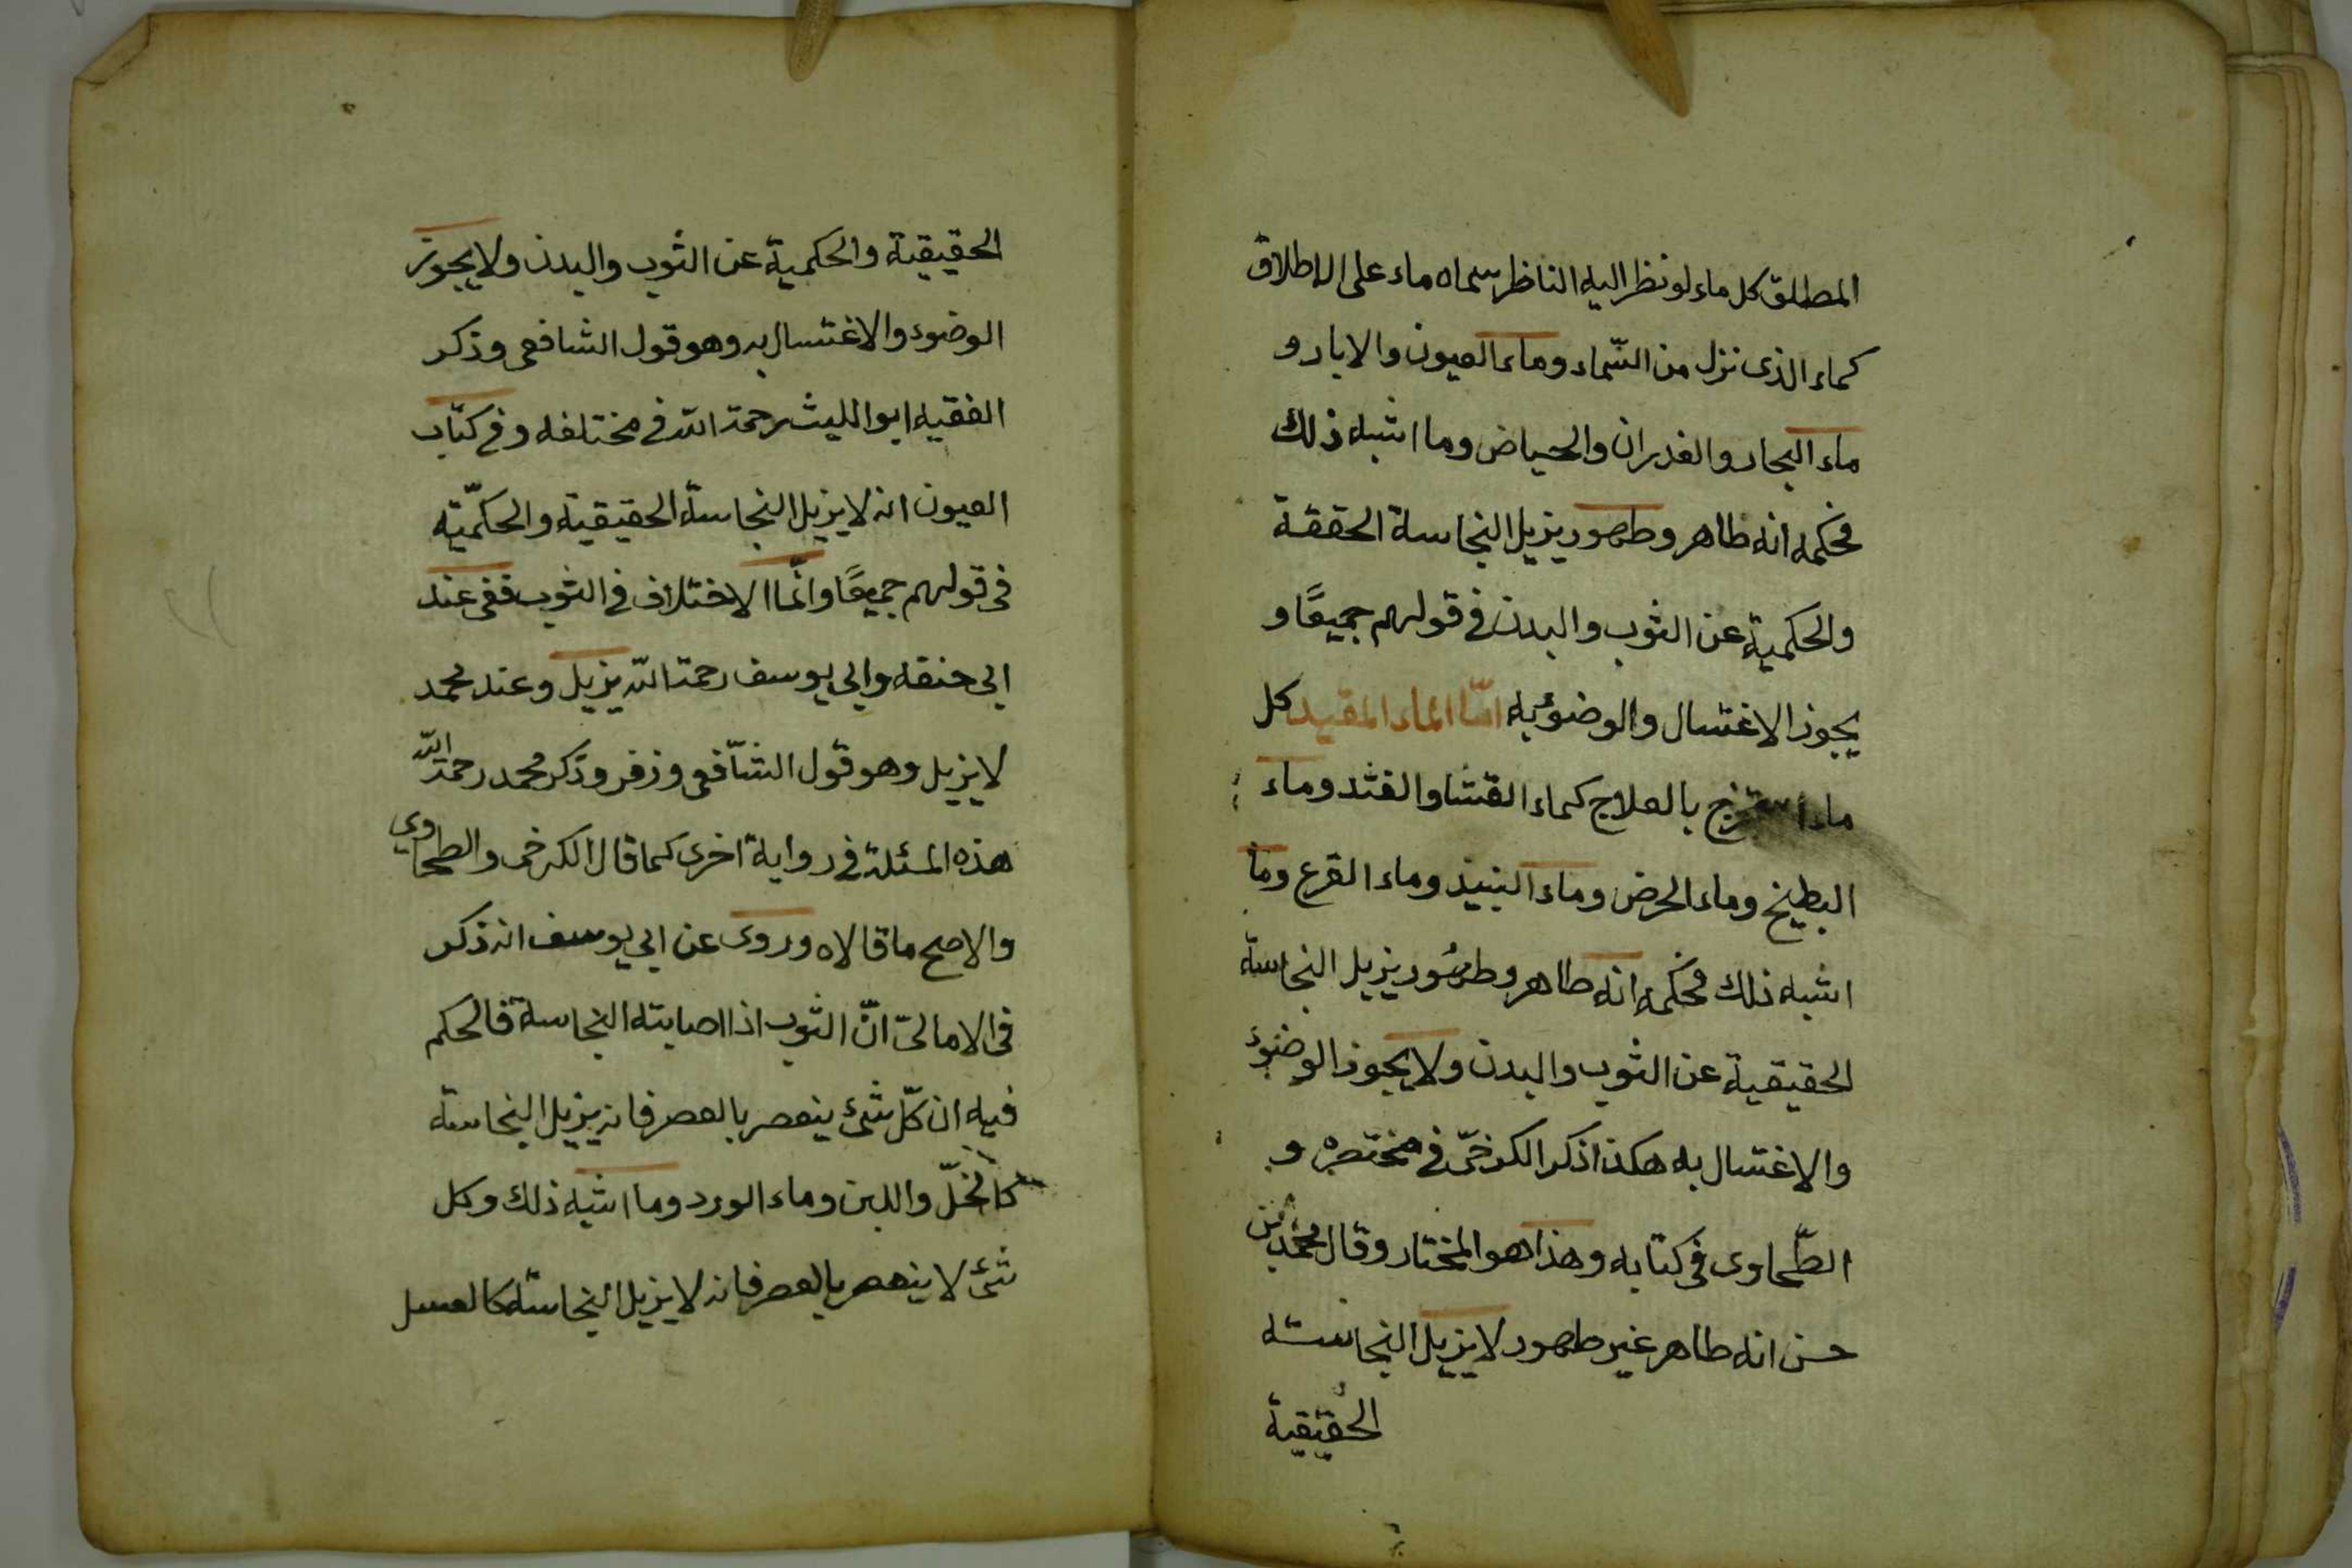 المطلق كل ماء لو نظر اليه الناظر سماه ماء على الاطلاق
كماء الذى نزل من السّماء وماء العيون والابار و
ماء البحار والغدران والحياض وما اشبه ذلك
فحكمه انه طاهر وطهور يزيل النجاسة الحققة
والحكمية عن الثوب والبدن فى قولهم جميعًا و
يجوز الاغتسال والوضوء به امّا الماء المقيد كل
ماء بالعلاج كماء القثا والقثد وماء
البطيخ وماء الحرض وماء النبيذ وماء القرع وما
اشبه ذلك فحكمه انه طاهر وطهُور يزيل النجاسة
الحقيقية عن الثوب والبدن ولا يجوز الوضوء
والاغتسال به هكذا ذكر الكرخىّ فى مختصره و
الطّحاوى فى كتابه وهذا هو المختار وقال محمّد بن
حسن انه طاهر غير طهور لا يزيل النجاسته
الحقيقية
الحقيقية والحكمية عن الثوب والبدن ولا يجوز
الوضوء والاغتسال به وهو قول الشافعى وذكر
الفقيه ابو الليث رحمة الله فى مختلفه وفى كتاب
العيون انه لا يزيل النجاسة الحقيقية والحكمّيته
فى قولهم جميعًا وانّما الاختلاف فى الثوب ففى عند
ابى حنفه وابى يوسف رحمة الله يزيل وعند محمد
لا يزيل وهو قول الشّافعى وزفر وذكر محمد رحمة الله
هذه المسئلة فى رواية اخرى كما قال الكرخى والطحاوى
والاصح ما قالاه وروى عن ابى يوسف انه ذكر
فى الامالىّ انّ الثوب اذا اصابته النجاسة فالحكم
فيه ان كلّ شئ ينعصر بالعصر فانه يزيل النجاسة
كالخلّ واللبن وماء الورد وما اشبه ذلك وكل
شئ لا ينعصر بالعصر فانه لا يزيل النجاسة كالعسل